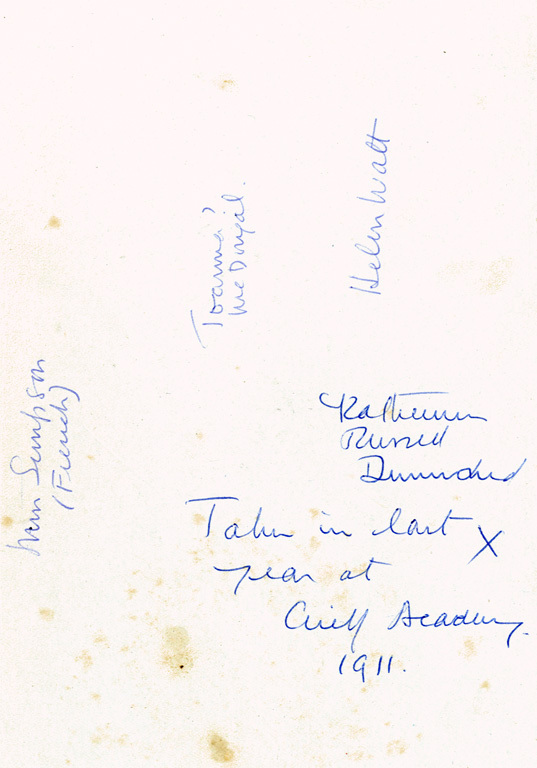 Helen Watt
Joanna?
McDougal.
Miss Simpson
(French)
Katherine
Russell
Taken in last
year at
Crieff Academy
1911.
X